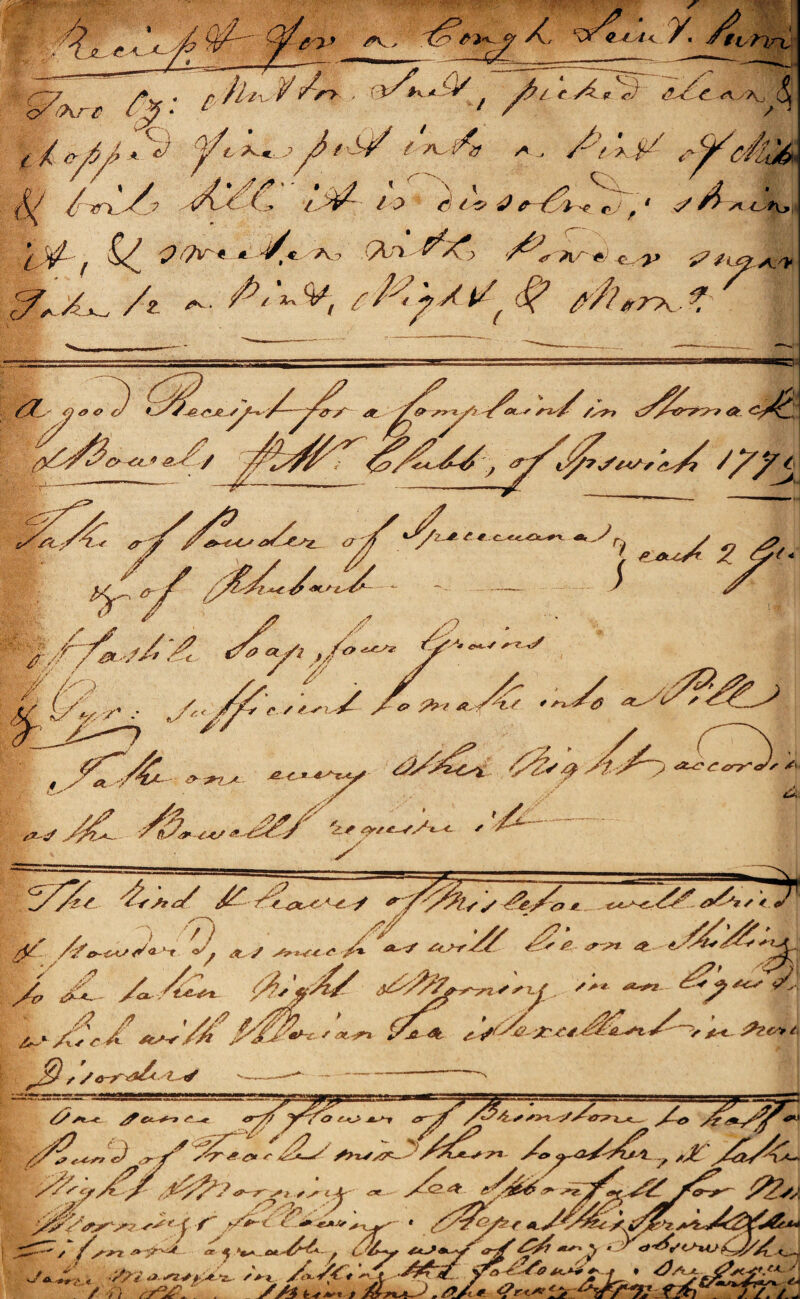 Reciept for a Cough Leiut. Purvi
Two Oz: Mutton Suet, picked clean, &
chopped fine put into a Pint of Milk
& boil till it is dissolved; strain
it, & sweeten with Powder sugar
Take 1/2 a Pint, Night, & Morng.
a good Receipt for a Complaint in Stomack
& Bowels Pr Mr Clubb, of Ipswich 177
Take of Powder of Ipececuana } each 2 Gr.
& of Rhubarb
of Castile Soap, four Grains
& Syr: sufficient to make into a Pill
Take one every Other Night accordin
as the Bowells require it
The rind & leaves of Misletoe well dried
& powder'd, as much as will lie on a Shilling
to be taken Night & Morning in an liquid,
which with Valerian Tea is excellent in
Disorders
One ounce of flower of Brimstone to half a
Pound of Treacle mix them together, & take
Night & Morning a tea spoonfull for
Mornings following. Repeat this
if more agreable, by way of Change observe the
same Manner in taking the following. One Ounce
Brimstone, One Ounce Cream of Tartar